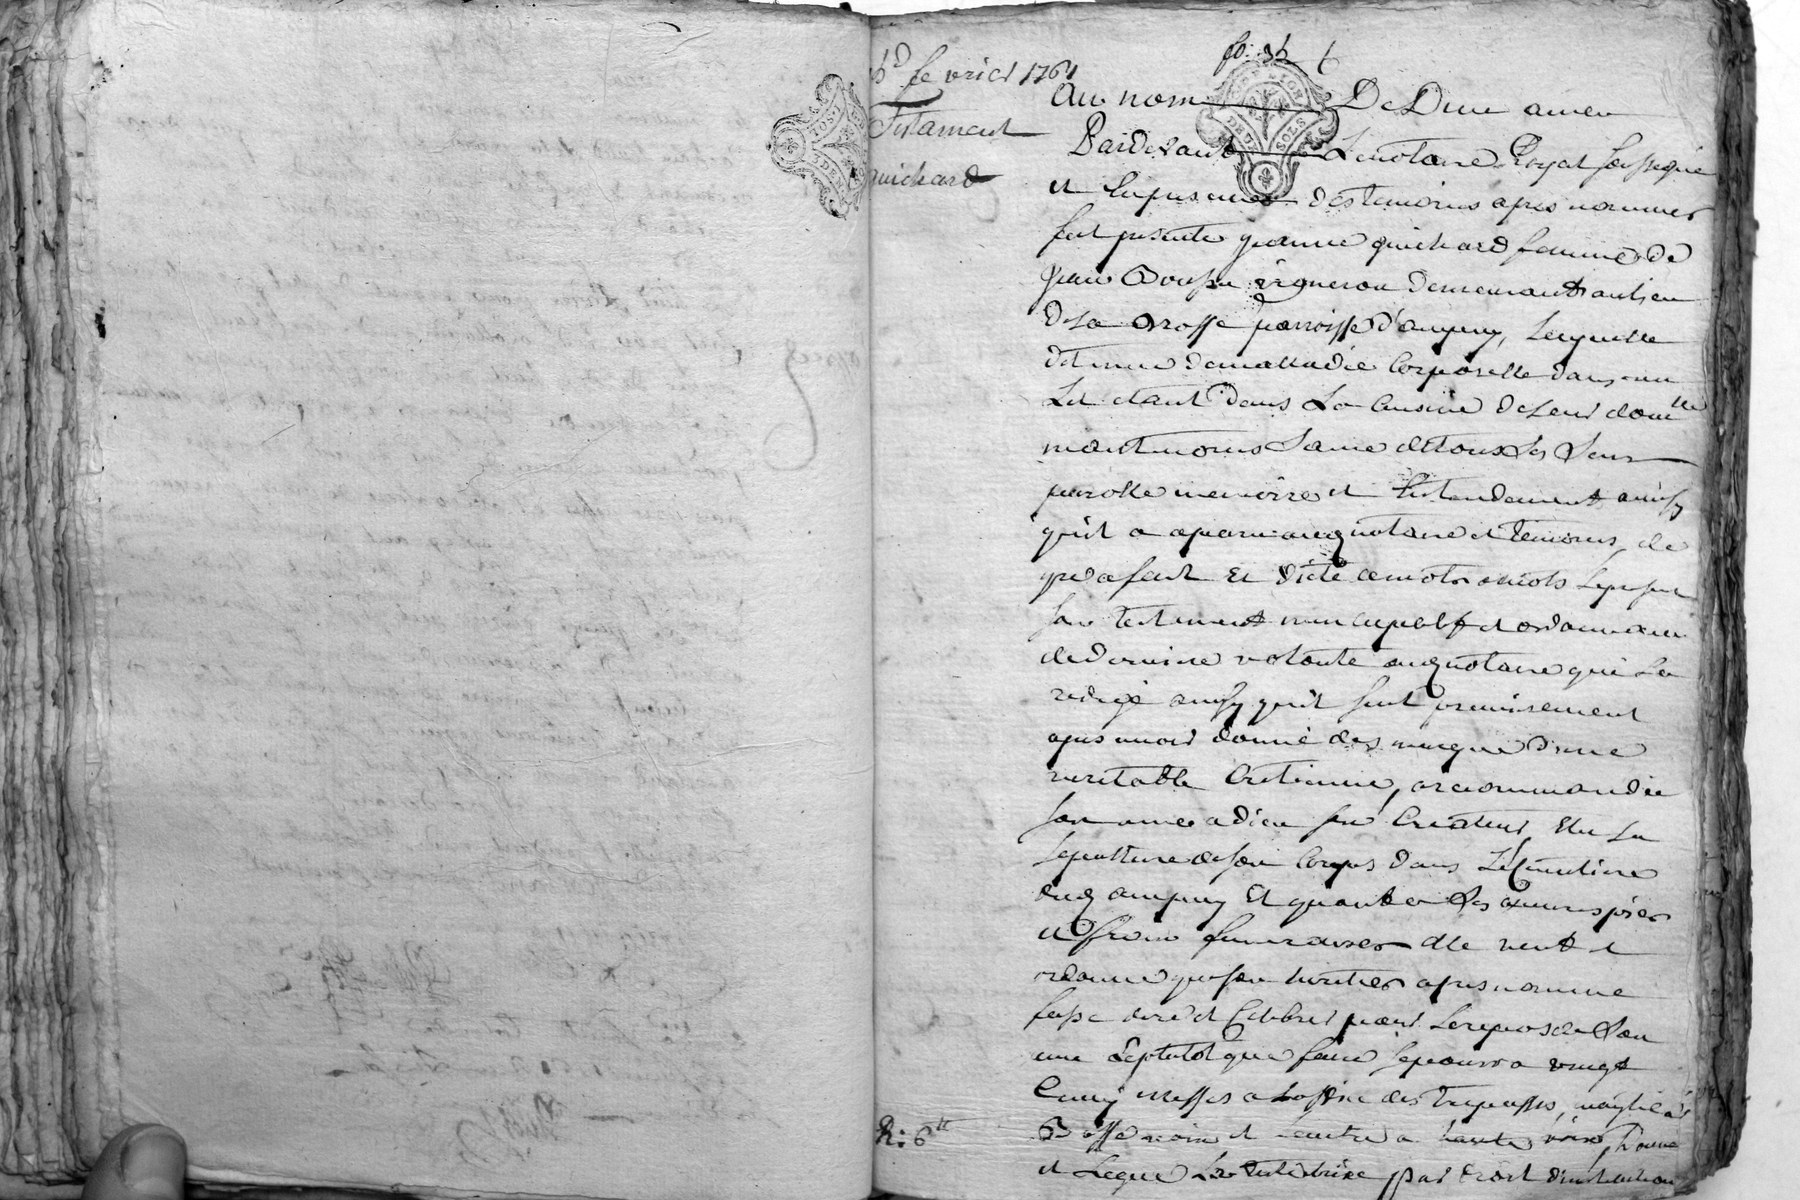 fo. 36
6d fevrier 1761
Testament
guichard
GEN DE LYON
DEUX SOLS
Au nom De Dieu amen
Pardevant Le notaire Royal soussigné
et En presence des temoins apres nommes
fut presente jeanne guichard femme de
jean vigneron demeurant au lieu
de la brosse parroisse d'ampuy, Laquelle
detenue de malladie Corporelle dans un
Lit etant dans La Cuisine de leur domlle
maintmoins saine de tous Ses Sens
parolle memoire et Entendement ainsy
qu'il a aparu audt notaire et temoins, de
gré a fait Et dicté de mot a mots Le present
son testament nuncupatif et ordonnance
de derniere volonté audt notaire qui La
redigé ainsy qu'il suit premierement
apres avoir donné des marque d'une
veritable Cretienne, a recommandée
son ame a dieu son Createur, Elu Sa
Sepulture de son Corps dans Le Cimetiere
dudt ampuy Et quant a Ses œuvres pies
et frais funeraires elle veut et
ordonne que son heritier apres nommé
fasse dire et Celebrer pour Le repos de Son
ame Sitotot que faire Se pourra vingt
Cinq Messes a Loffice des trepassés, moytié a
Basse voix et Lautre a haute voix, Donne
et Legue La testatrice par droit d'institution
R: 6tt